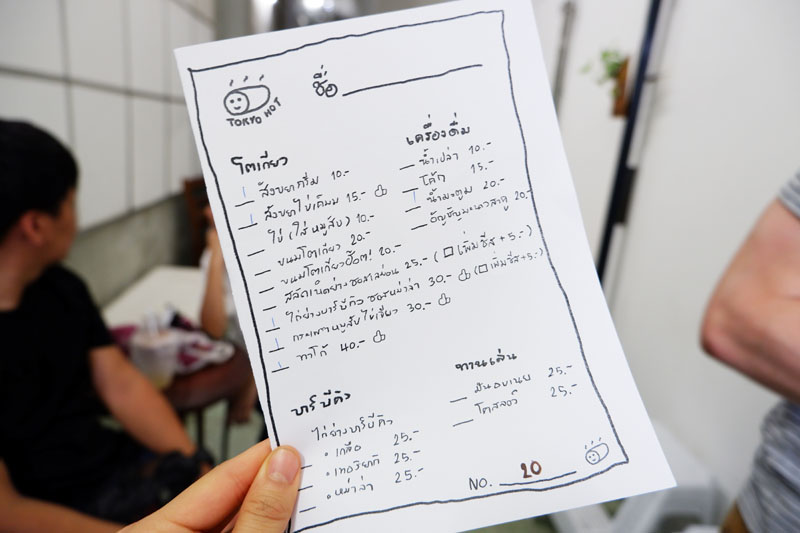 TOKYO HOT
ชื่อ
โตเกียว
สังขยาครีม 10.-
สังขยาไข่เค็มม 15.-
ไข่ (ใส่หมูสับ) 10.-
ขนมโตเกียว 20.-
ขนมโตเกียวฮ็อต! 20.-
25.- ( เพิ่มชีส +5.-)
ไก่ย่างบาร์บีคิว ซอสหม่าล่า 30.- ( เพิ่มชีส +5.-)
กะเพราหมูสับไข่เยี่ยว 30.-
ทาโก้ 40.-
เครื่องดื่ม
น้ำเปล่า 10.-
โค้ก 15.-
น้ำมะตูม 20.-
อัญชันมะนาวสาคู 20.-
บาร์บีคิว
ไก่ย่างบาร์บีคิว
• เกลือ 25.-
• เทอริยากิ 25.-
• หม่าล่า 25.-
ทานเล่น
มันอบเนย 25.-
โคสลอว์ 25.-
NO. 20